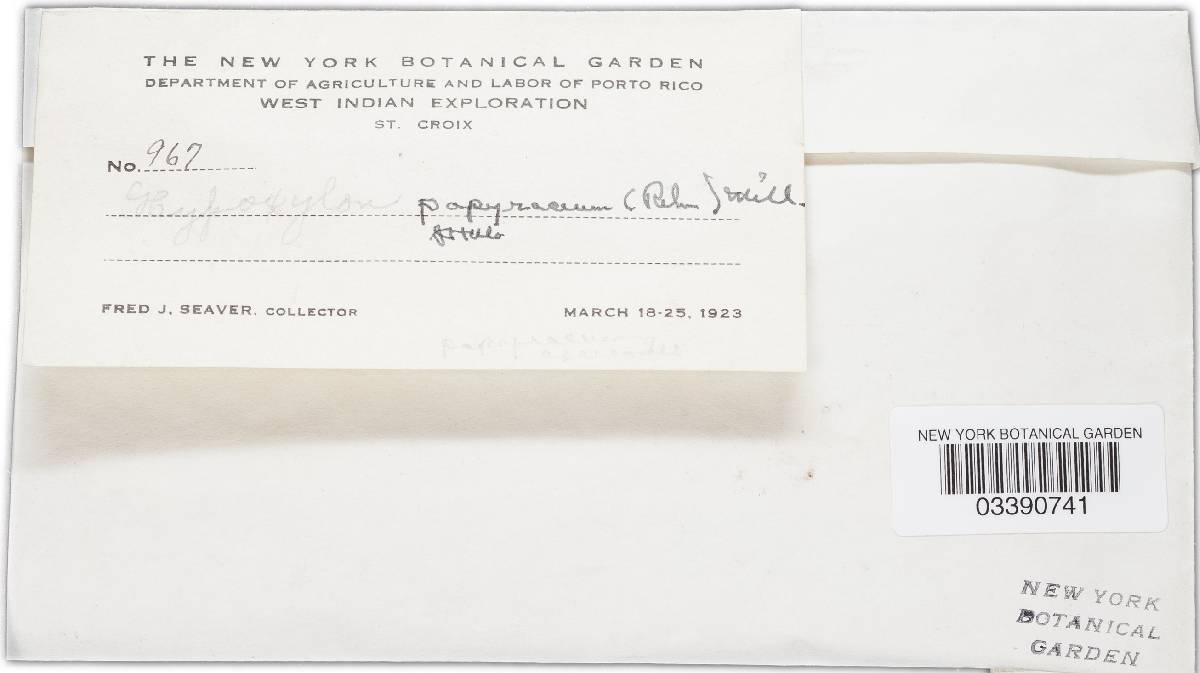 THE NEW YORK BOTANICAL GARDEN
DEPARTMENT OF AGRICULTURE AND LABOR OF PORTO RICO
WEST INDIAN EXPLORATION
ST. CROIX
No. 967
Hypoxylon papyraceum (Rehm) Mill.
FRED J. SEAVER, COLLECTOR MARCH 18-25, 1923
papyraceum
NEW YORK BOTANICAL GARDEN
03390741
NEW YORK
BOTANICAL
GARDEN